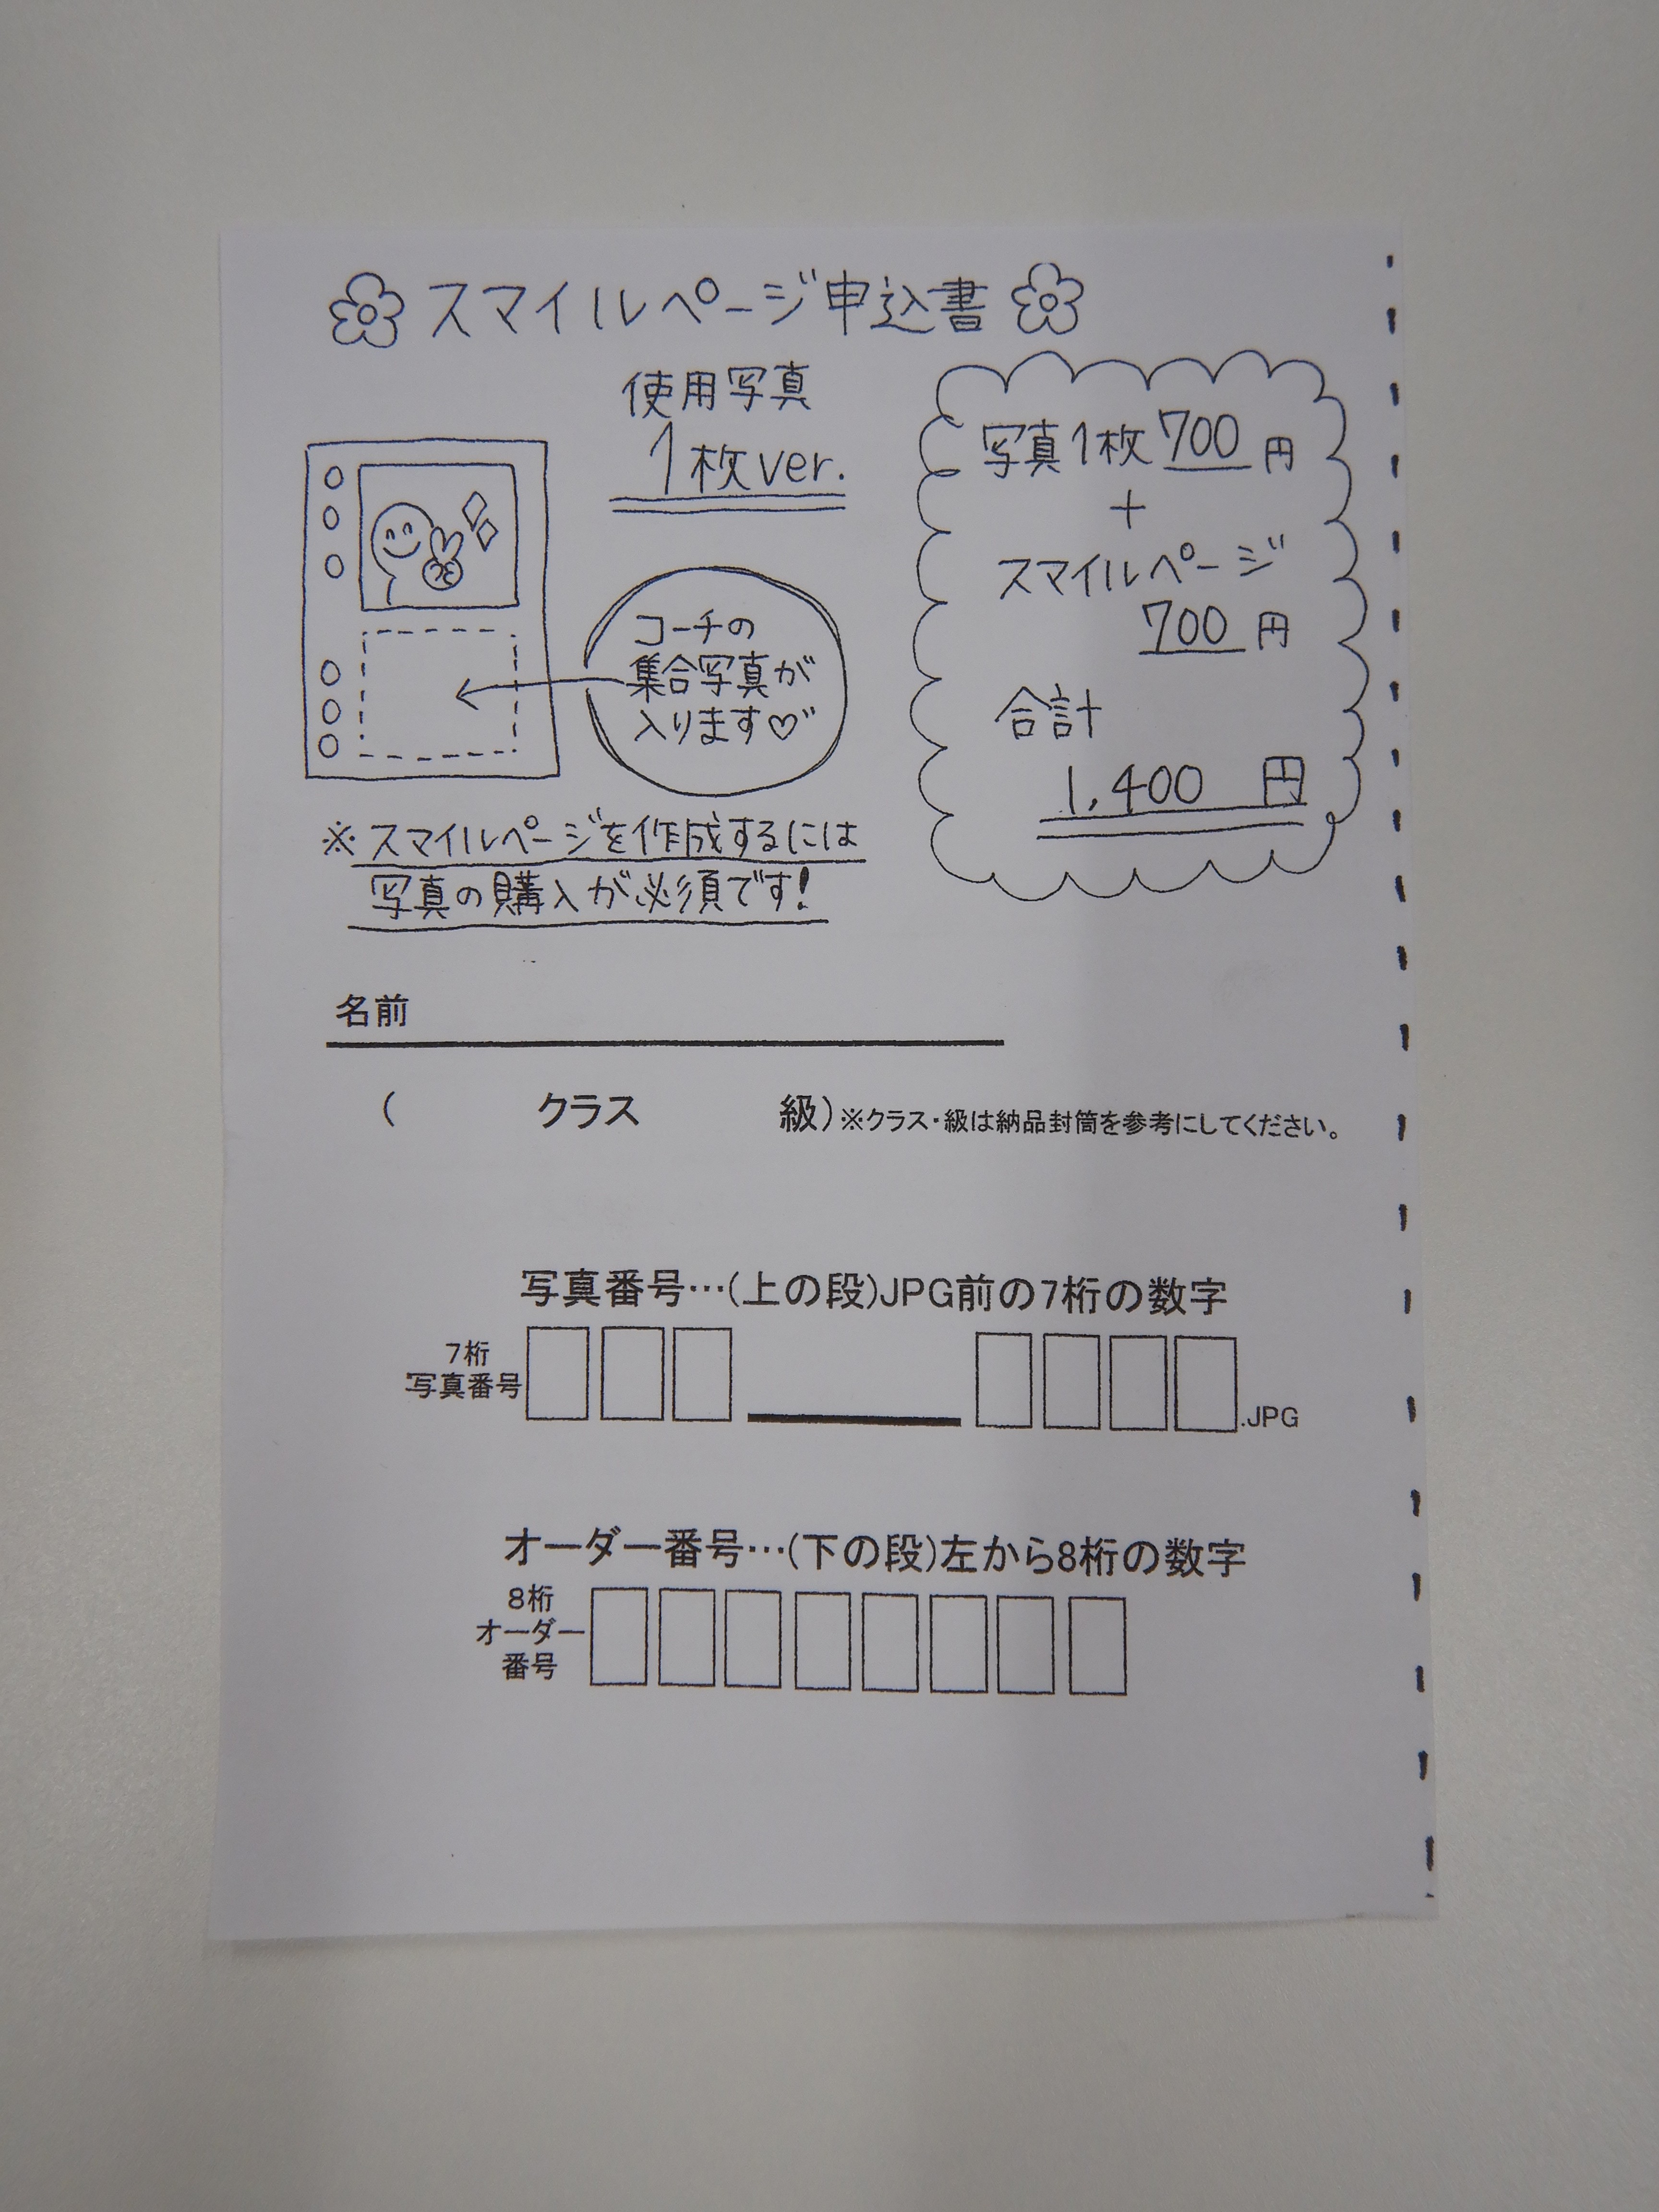 スマイルページ申込書
使用写真
1枚ver.
コーチの
集合写真が
入ります♡
写真1枚700円
+
スマイルページ
700円
合計
1,400 円
※スマイルページを作成するには
写真の購入が必須です!
名前
( クラス 級)※クラス・級は納品封筒を参考にしてください。
写真番号…(上の段)JPG前の7桁の数字
7桁
写真番号
.JPG
オーダー番号…(下の段)左から8桁の数字
8桁
オーダー
番号